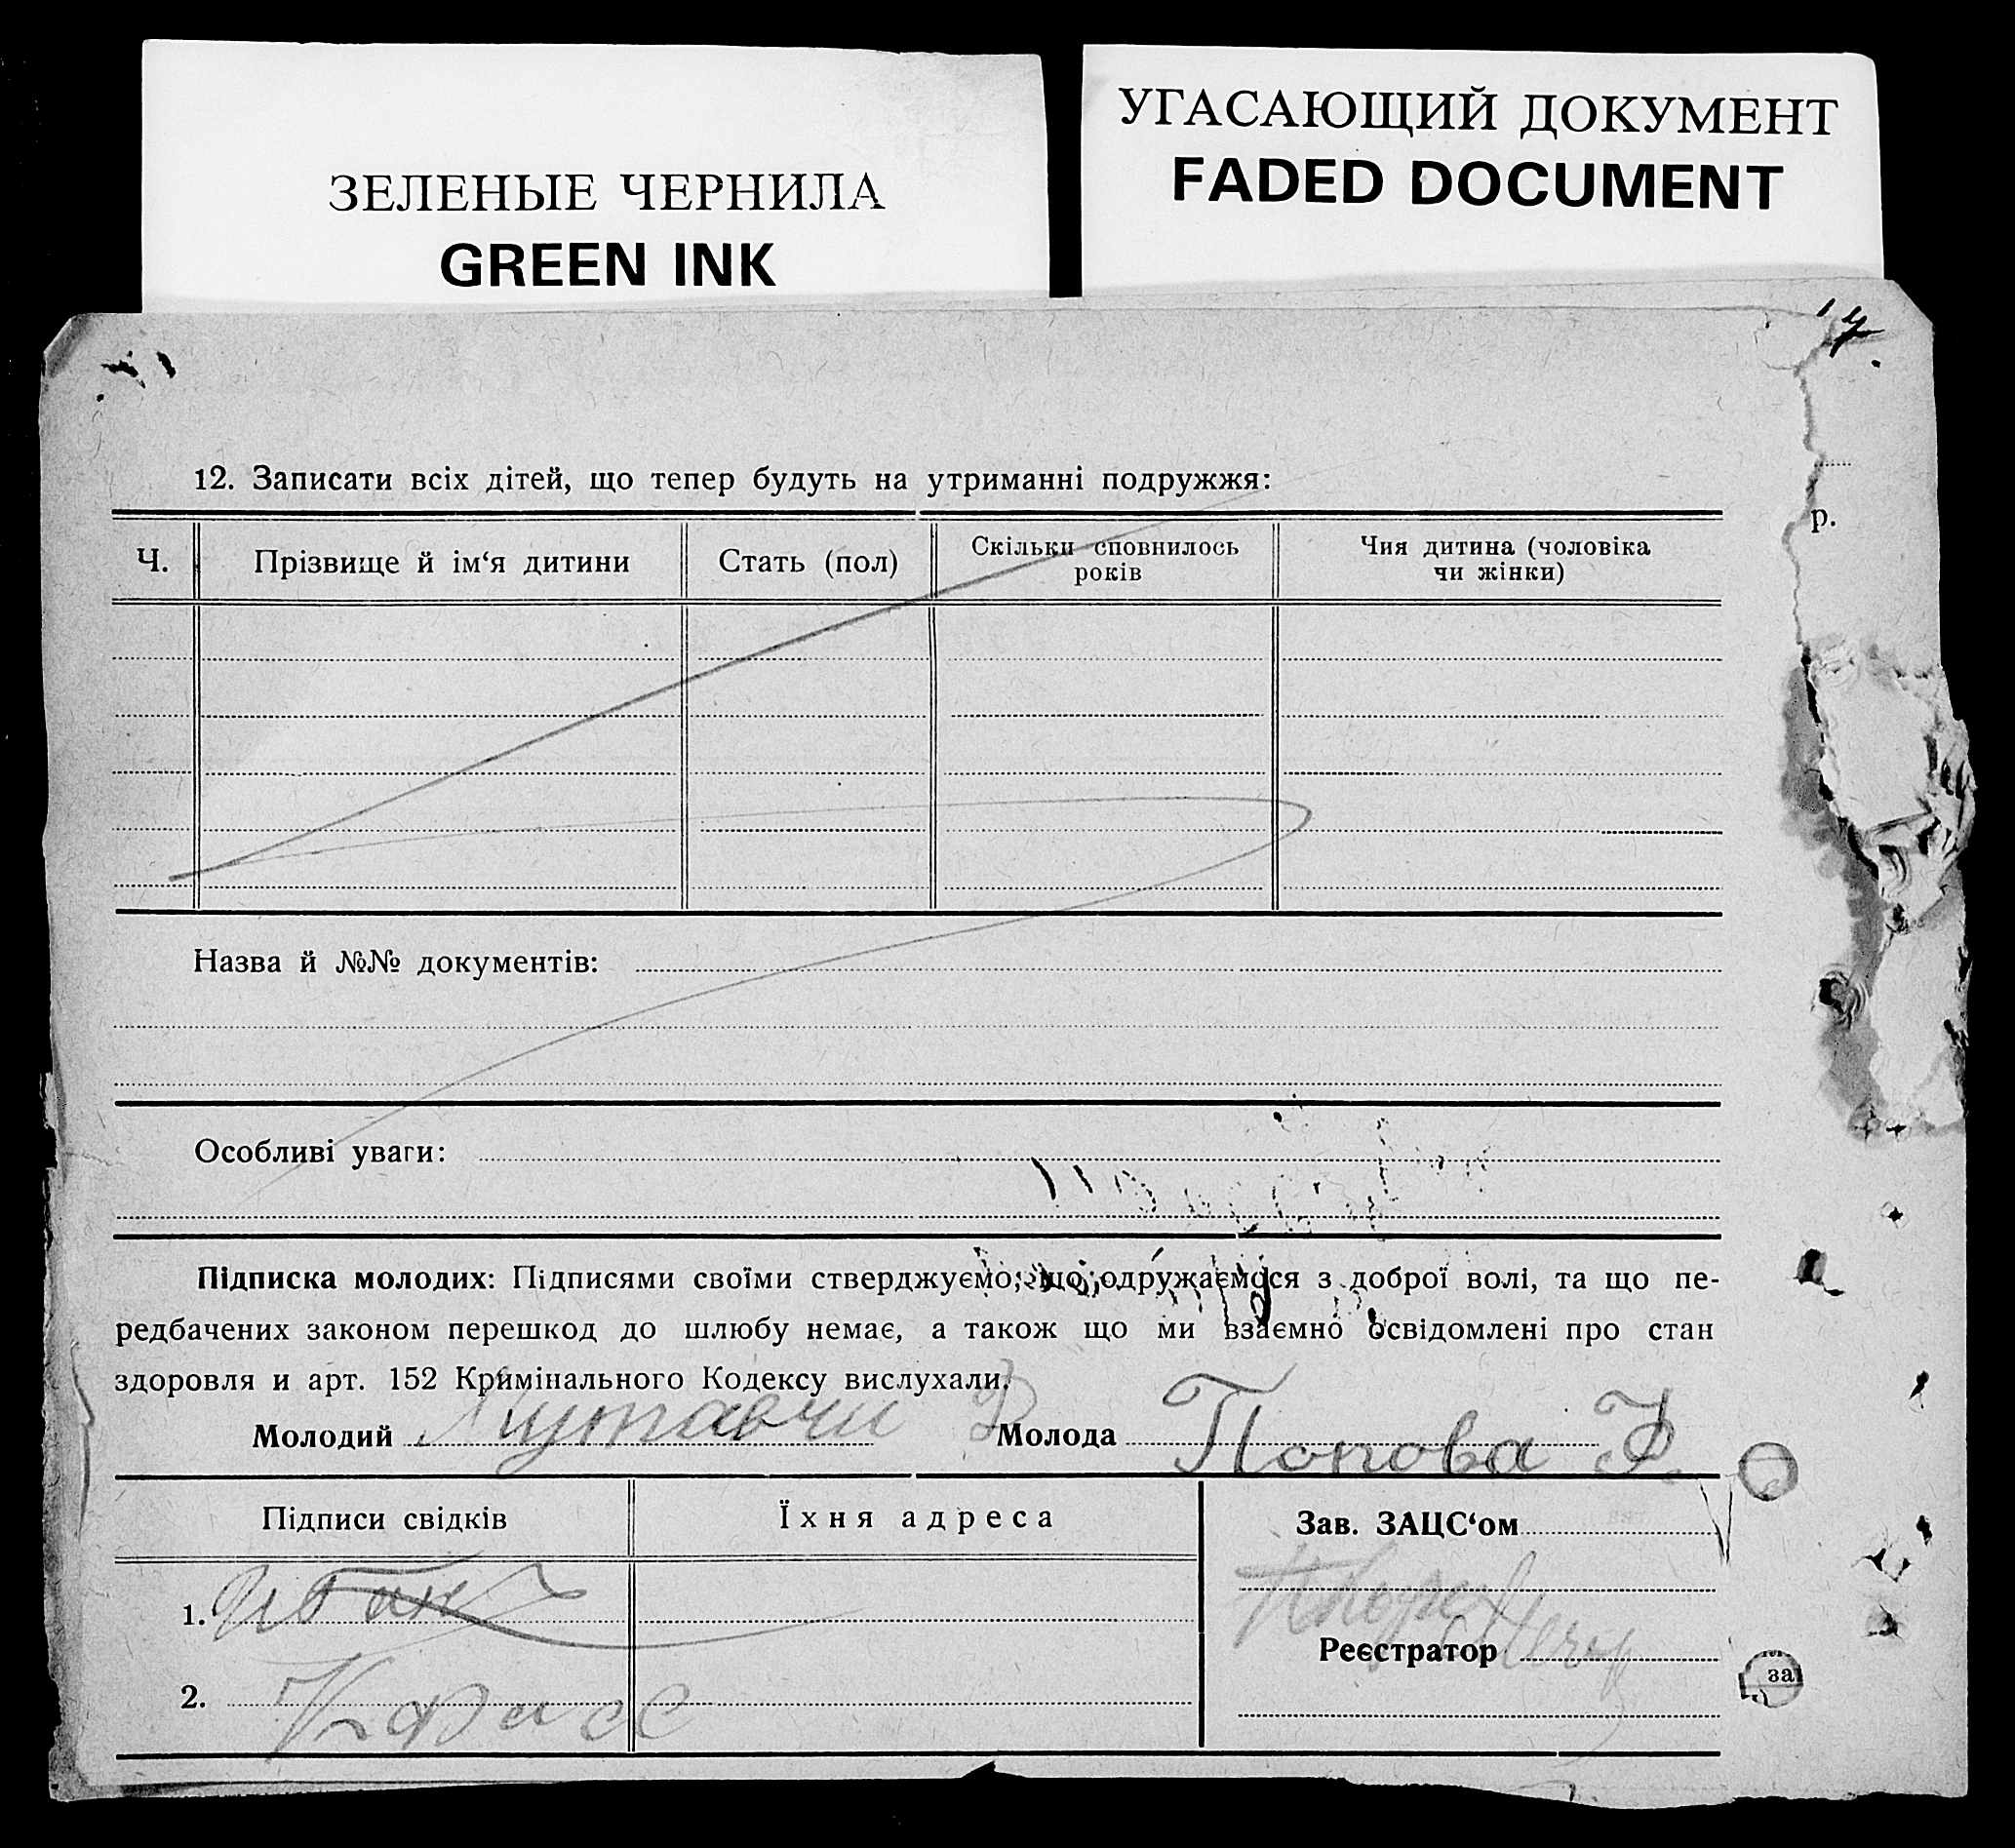 ЗЕЛЕНЫЕ ЧЕРНИЛА
GREEN INK
УГАСАЮЩИЙ ДОКУМЕНТ
FADED DOCUMENT
р.
12. Записати всіх дітей, що тепер будуть на утриманні подружжя:
Ч. Прізвище й ім‘я дитини Стать (пол) Скільки сповнилось років Чия дитина (чоловіка чи жінки)
Назва й №№ документів:
Особливі уваги:
Підписка молодих: Підписями своїми стверджуємо, що одружаємося з доброї волі, та що пе-
редбачених законом перешкод до шлюбу немає, а також що ми взаємно освідомлені про стан
здоровля и арт. 152 Кримінального Кодексу вислухали.
Молодий Молода Попова Ф
Підписи свідків Їхня адреса Зав. ЗАЦС‘ом
1.
Реєстратор
2.
за